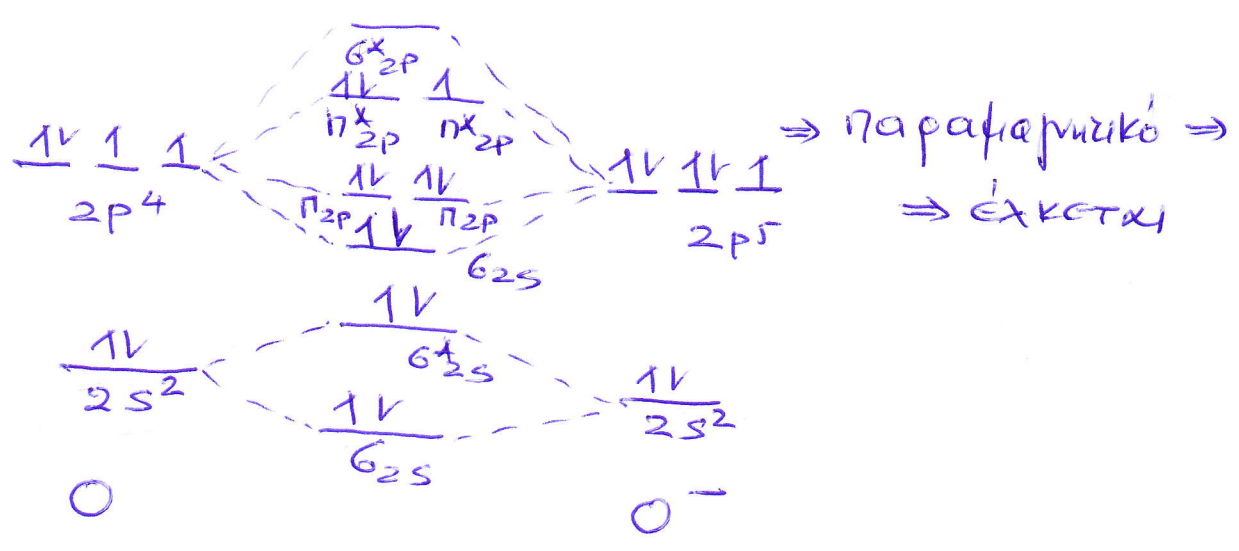 σ*2p
1l 1
π*2p π*2p
1l 1 1
2p4
1l 1l
π2p π2p
1l
σ2s
1l 1l 1
2p5
⇒ παραμαγνητικό ⇒
⇒ έλκεται
1l
σ*2s
1l
2s2
1l
σ2s
1l
2s2
O
O−